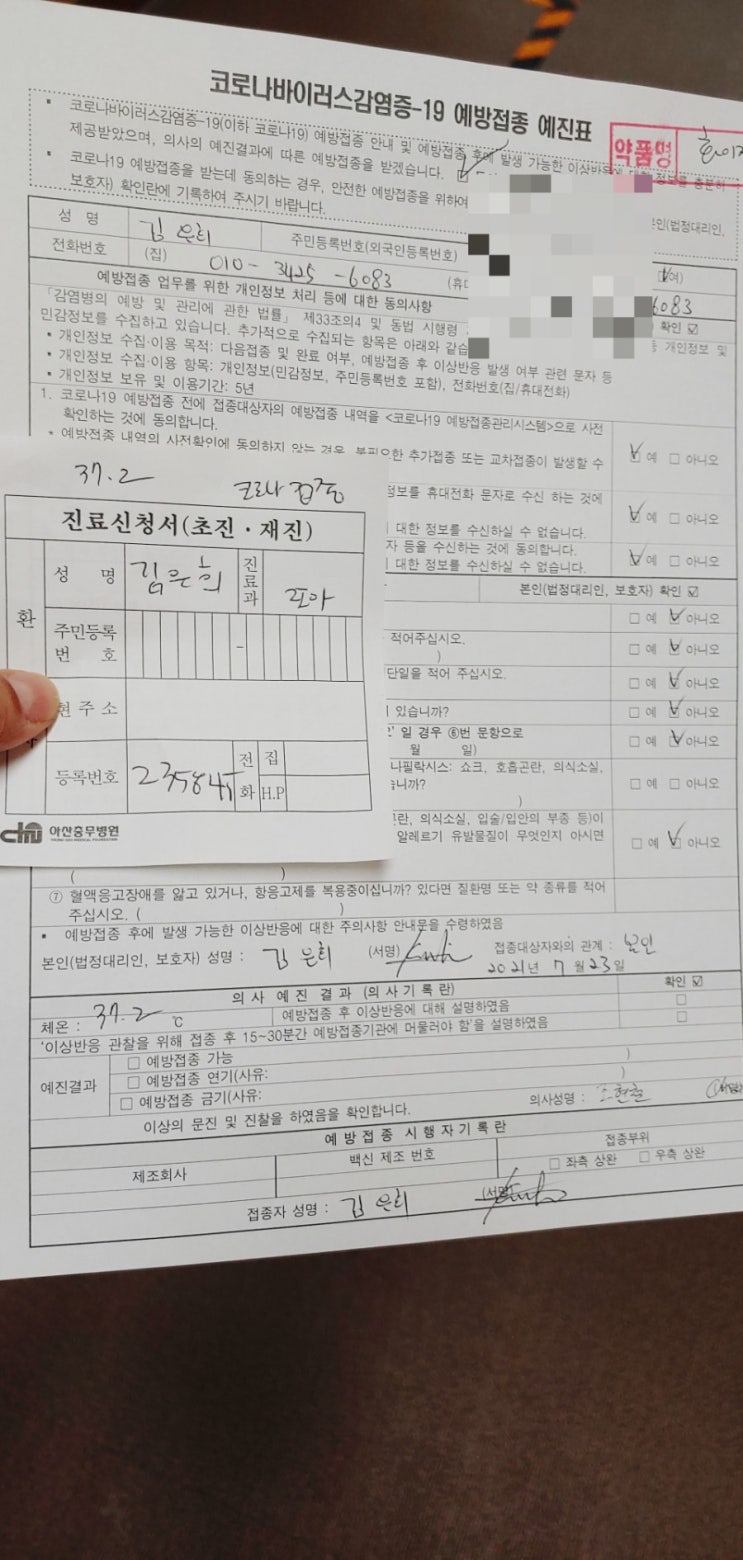 코로나바이러스감염증-19 예방접종 예진표
약품명
코로나바이러스감염증-19(이하 코로나19) 예방접종 안내 및 예방접종 후에 발생 가능한 이상반응에 대한 정보를 충분히
제공받았으며, 의사의 예진결과에 따른 예방접종을 받겠습니다.
코로나19 예방접종을 받는데 동의하는 경우, 안전한 예방접종을 위하여 본인(법정대리인,
보호자) 확인란에 기록하여 주시기 바랍니다.
성 명 김은희 주민등록번호(외국인등록번호)
전화번호 (집) 010-3425-6083 6083
예방접종 업무를 위한 개인정보 처리 등에 대한 동의사항 확인 ☑
「감염병의 예방 및 관리에 관한 법률」 제33조의4 및 동법 시행령 개인정보 및
민감정보를 수집하고 있습니다. 추가적으로 수집되는 항목은 아래와 같습
* 개인정보 수집·이용 목적: 다음접종 및 완료 여부, 예방접종 후 이상반응 발생 여부 관련 문자 등
* 개인정보 수집·이용 항목: 개인정보(민감정보, 주민등록번호 포함), 전화번호(집/휴대전화)
* 개인정보 보유 및 이용기간: 5년
1. 코로나19 예방접종 전에 접종대상자의 예방접종 내역을 <코로나19 예방접종관리시스템>으로 사전
확인하는 것에 동의합니다. ☑ 예 □ 아니오
* 예방접종 내역의 사전확인에 동의하지 않는 경우, 불필요한 추가접종 또는 교차접종이 발생할 수
정보를 휴대전화 문자로 수신 하는 것에
대한 정보를 수신하실 수 없습니다. ☑ 예 □ 아니오
자 등을 수신하는 것에 동의합니다.
대한 정보를 수신하실 수 없습니다. ☑ 예 □ 아니오
본인(법정대리인, 보호자) 확인 ☑
□ 예 ☑ 아니오
적어주십시오.
) □ 예 ☑ 아니오
단일을 적어 주십시오. □ 예 ☑ 아니오
있습니까? □ 예 ☑ 아니오
일 경우 ⑥번 문항으로 □ 예 ☑ 아니오
월 일)
나필락시스: 쇼크, 호흡곤란, 의식소실,
습니까? □ 예 □ 아니오
)
란, 의식소실, 입술/입안의 부종 등)이
알레르기 유발물질이 무엇인지 아시면 □ 예 ☑ 아니오
( )
⑦ 혈액응고장애를 앓고 있거나, 항응고제를 복용중이십니까? 있다면 질환명 또는 약 종류를 적어
주십시오. ( )
예방접종 후에 발생 가능한 이상반응에 대한 주의사항 안내문을 수령하였음
본인(법정대리인, 보호자) 성명 : 김은희 (서명) 접종대상자와의 관계 : 본인
2021년 7월 23일
의사 예진 결과 (의사기록란) 확인 ☑
체온 : 37.2 ℃ 예방접종 후 이상반응에 대해 설명하였음 □
‘이상반응 관찰을 위해 접종 후 15~30분간 예방접종기관에 머물러야 함’을 설명하였음 □
예진결과
□ 예방접종 가능
□ 예방접종 연기(사유: )
□ 예방접종 금기(사유: )
이상의 문진 및 진찰을 하였음을 확인합니다. 의사성명 :
예방접종 시행자기록란
제조회사 백신 제조 번호 접종부위
□ 좌측 상완 □ 우측 상완
접종자 성명 : 김은희 (서명)
37.2 코로나 접종
진료신청서(초진·재진)
환
성 명 김은희 진료과
주민등록번호 -
현주소
등록번호 235845 전화 집
H.P
아산충무병원